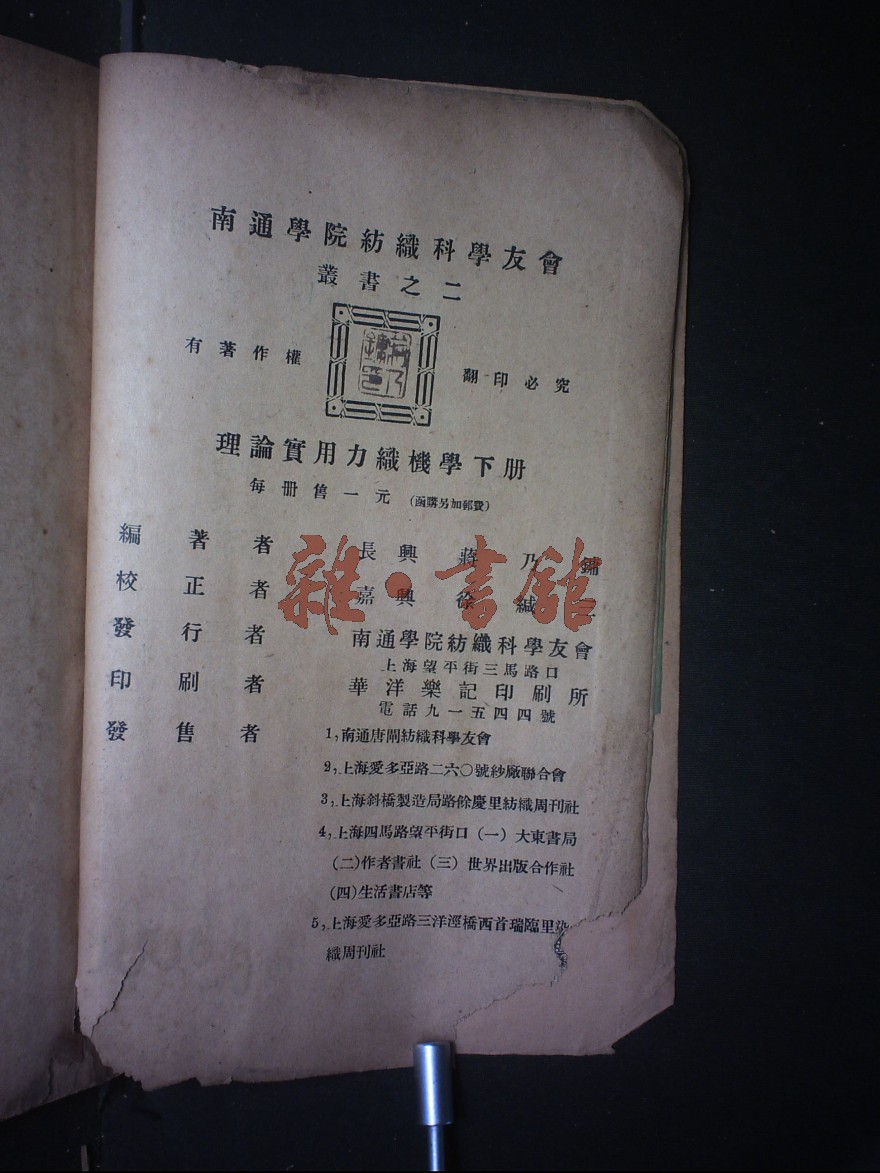 南通學院紡織科學友會
叢書之二
有著作權 翻印必究
理論實用力織機學下册
每册售一元(函購另加郵費)
編著者 長興蔣乃鏞
校正者 嘉興徐緘
發行者 南通學院紡織科學友會
上海望平街三馬路口
印刷者 華洋樂記印刷所
電話九一五四四號
發售者 1,南通唐閘紡織科學友會
2,上海愛多亞路二六〇號紗廠聯合會
3,上海斜橋製造局路餘慶里紡織周刊社
4,上海四馬路望平街口(一)大東書局
(二)作者書社(三)世界出版合作社
(四)生活書店等
5,上海愛多亞路三洋涇橋西首瑞臨里染
織周刊社
雜·書館